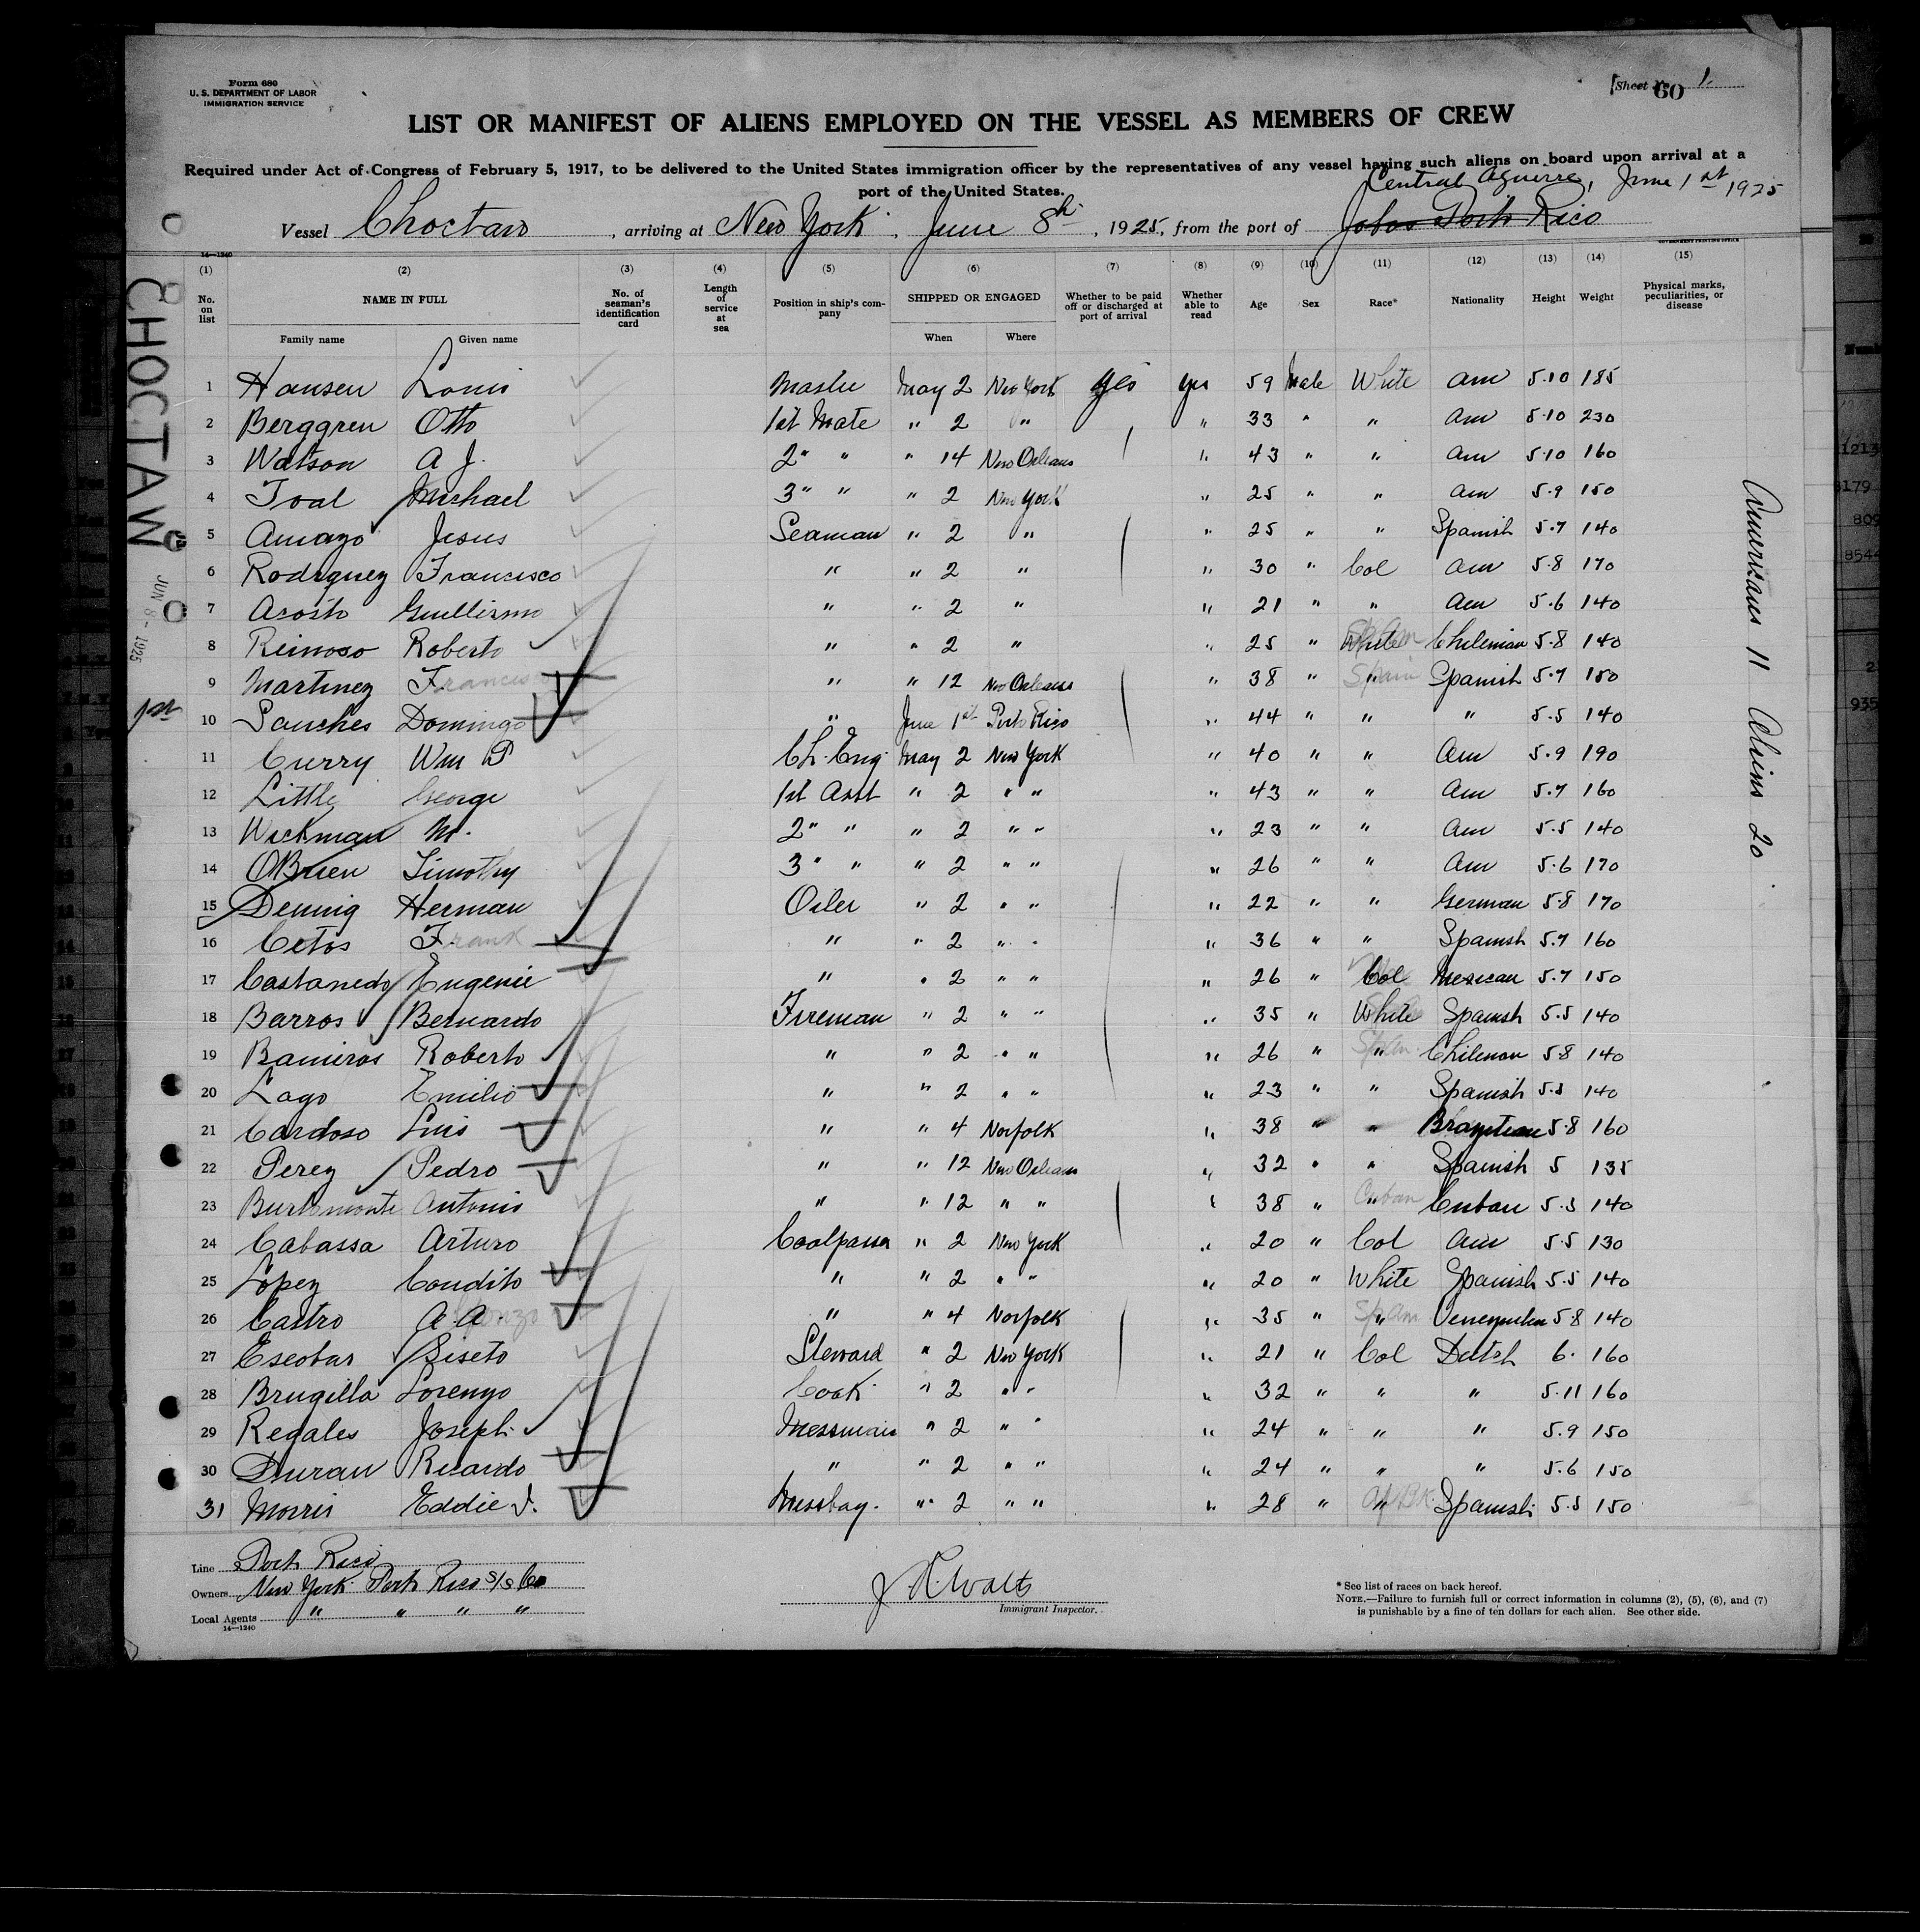 Form 680
U. S. DEPARTMENT OF LABOR
IMMIGRATION SERVICE
Sheet 60 1
LIST OR MANIFEST OF ALIENS EMPLOYED ON THE VESSEL AS MEMBERS OF CREW
Required under Act of Congress of February 5, 1917, to be delivered to the United States immigration officer by the representatives of any vessel having such aliens on board upon arrival at a
port of the United States.
Central Aguirre, June 1st 1925
Vessel Choctaw, arriving at New York, June 8th, 1925, from the port of Jobos Porto Rico
14—1240 GOVERNMENT PRINTING OFFICE
(1) (2) (3) (4) (5) (6) (7) (8) (9) (10) (11) (12) (13) (14) (15)
No. on list NAME IN FULL No. of seaman's identification card Length of service at sea Position in ship's company SHIPPED OR ENGAGED Whether to be paid off or discharged at port of arrival Whether able to read Age Sex Race* Nationality Height Weight Physical marks, peculiarities, or disease
Family name Given name When Where
1 Hansen Louis Master May 2 New York Yes yes 59 Male White Am 5.10 185
2 Berggren Otto 1st Mate " 2 " " 33 " " Am 5.10 230
3 Watson A J. 2" " " 14 New Orleans " 43 " " Am 5.10 160
4 Toal Michael 3" " " 2 New York " 25 " " Am 5.9 150
5 Amayo Jesus Seaman " 2 " " 25 " " Spanish 5.7 140
6 Rodriguez Francisco " " 2 " " 30 " Col Am 5.8 170
7 Acosto Guillermo " " 2 " " 21 " " Am 5.6 140
8 Reinoso Roberto " " 2 " " 25 " White Chilenian 5.8 140
9 Martinez Francis " " 12 New Orleans " 38 " Spain " Spanish 5.7 150
10 Sanches Domingo " June 1st Porto Rico " 44 " " " 5.5 140
11 Curry Wm P Ch. Eng May 2 New York " 40 " " Am 5.9 190
12 Little George 1st Asst " 2 " " " 43 " " Am 5.7 160
13 Wickman M. 2" " " 2 " " " 23 " " Am 5.5 140
14 OBrien Timothy 3" " " 2 " " " 26 " " Am 5.6 170
15 Dennig Herman Oiler " 2 " " " 22 " " German 5.8 170
16 Cetos Frank " " 2 " " " 36 " " Spanish 5.7 160
17 Castanedo Eugenie " " 2 " " " 26 " Col Mexican 5.7 150
18 Barros Bernardo Fireman " 2 " " " 35 " White Spanish 5.5 140
19 Bamiros Roberto " " 2 " " " 26 " " Chilenon 5 8 140
20 Lago Emilio " " 2 " " " 23 " " Spanish 5.5 140
21 Cardoso Luis " " 4 Norfolk " 38 " " 5.8 160
22 Perez Pedro " " 12 New Orleans " 32 " " Spanish 5 135
23 Antonio " " 12 " " " 38 " Cuban " Cuban 5.5 140
24 Cabassa Arturo Coalpasser " 2 New York " 20 " Col Am 5.5 130
25 Lopez Condito " " 2 " " " 20 " White Spanish 5.5 140
26 Castro A A " " 4 Norfolk " 35 " Spam " 5 8 140
27 Escobar Siseto Steward " 2 New York " 21 " Col Dutch 6. 160
28 Brugilla Lorenzo Cook " 2 " " " 32 " " " 5.11 160
29 Regales Joseph Messman " 2 " " " 24 " " " 5.9 150
30 Duran Ricardo " " 2 " " " 24 " " " 5.6 150
31 Morris Eddie J. Messboy. " 2 " " " 28 " " Spanish 5.5 150
Line Porto Rico
Owners New York Porto Rico S/S Co
Local Agents " " " "
14—1240
Immigrant Inspector.
* See list of races on back hereof.
NOTE.—Failure to furnish full or correct information in columns (2), (5), (6), and (7)
is punishable by a fine of ten dollars for each alien. See other side.
CHOCTAW
JUN 8 - 1925
Americans 11 Aliens 20